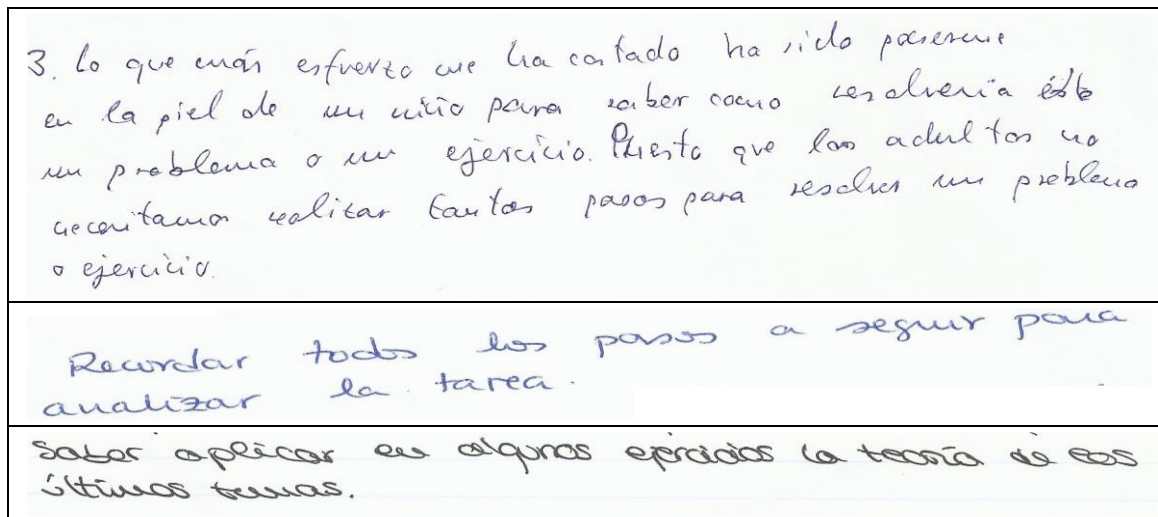 3. Lo que más esfuerzo me ha costado ha sido ponerme
en la piel de un niño para saber como resolvería éste
un problema o un ejercicio. Puesto que los adultos no
necesitamos realizar tantos pasos para resolver un problema
o ejercicio.
Recordar todos los pasos a seguir para
analizar la tarea.
Saber aplicar en algunos ejercicios la teoría de los
últimos temas.